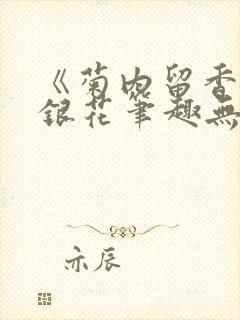 《菊内留香
銀花筆趣無
亦辰